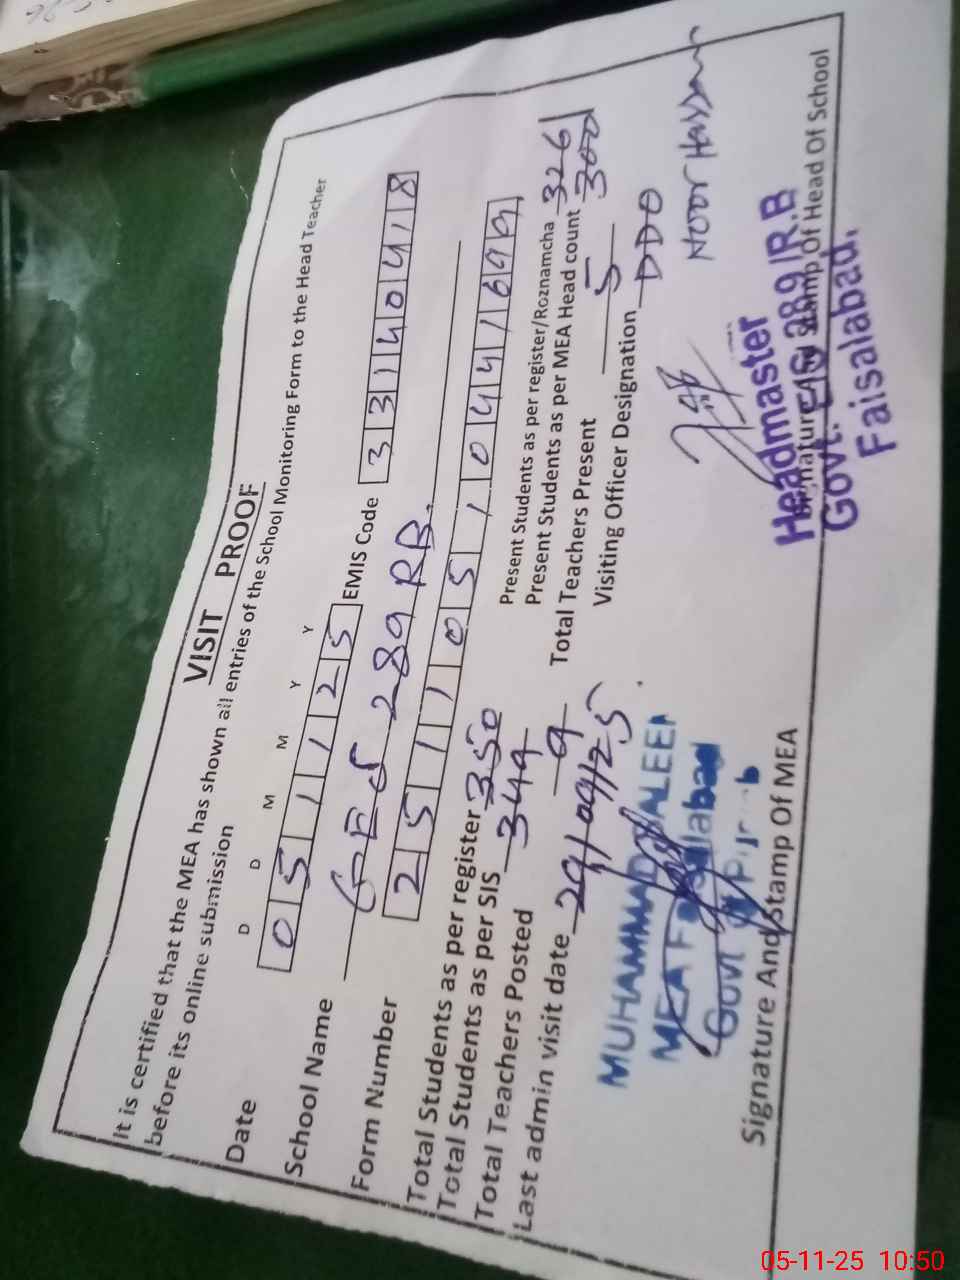 VISIT PROOF
It is certified that the MEA has shown all entries of the School Monitoring Form to the Head Teacher
before its online submission
D D M M Y Y
Date 051125 EMIS Code 33140418
School Name GES 289 RB.
Form Number 2511051044169
Total Students as per register 350
Total Students as per SIS 349
Total Teachers Posted 9
Last admin visit date 29/09/25
Present Students as per register/Roznamcha 326
Present Students as per MEA Head count 300
Total Teachers Present 5
Visiting Officer Designation DDO
Noor Hassan
MUHAMMAD
MEA
Govt
Signature And Stamp Of MEA
Headmaster
Govt. E/S 289/R.B
Faisalabad.
Signature And Stamp Of Head Of School
05-11-25 10:50